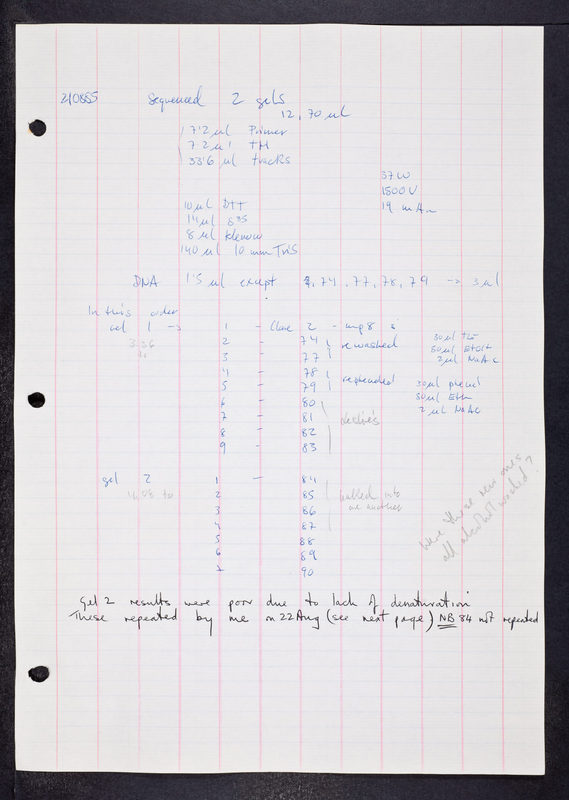 210885 Sequenced 2 gels
12, 70 ul
7.2 ul Primer
7.2 ul TM
33.6 ul tracks
37W
1500V
19 mA
10 ul DTT
14 ul S35
8 ul Klenow
140 ul 10 mm Tris
DNA 1.5 ul except 74, 77, 78, 79 -> 3 ul
In this order
gel 1 -> 1 - Clone 2 - mp8
3.36 2 - 74 rewashed 30 ul
3 - 77 80 ul EtOH 2 ul NaAc
4 - 78
5 - 79 30 ul
6 - 80 80 ul Eth
7 - 81 2 ul NaAc
8 - 82
9 - 83
gel 2 1 - 84
2 85 walked into
3 86 one another
4 87
5 88
6 89
7 90
Were these new ones
all alcohol washed?
Gel 2 results were poor due to lack of denaturation
These repeated by me on 22 Aug (see next page) NB 84 not repeated